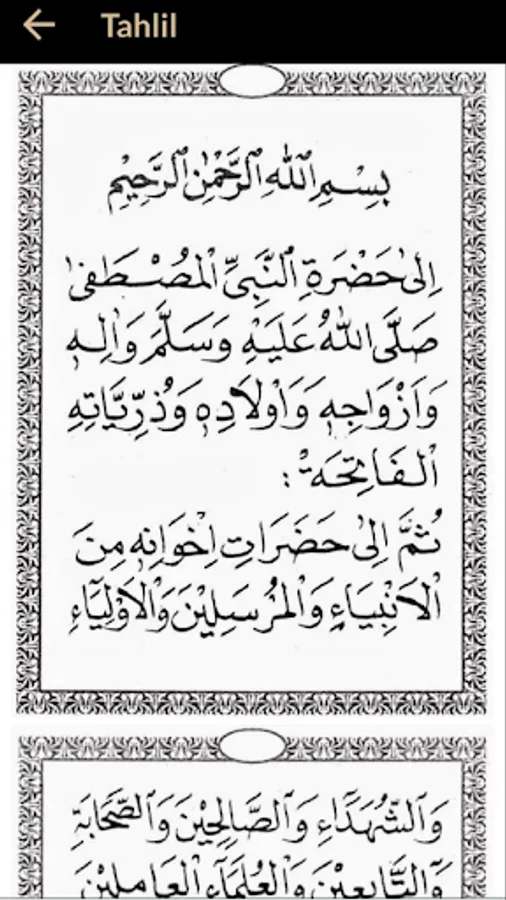 Tahlil
بِسْمِ اللّٰهِ الرَّحْمٰنِ الرَّحِيْمِ
اِلٰى حَضْرَةِ النَّبِيِّ الْمُصْطَفٰى
صَلَّى اللّٰهُ عَلَيْهِ وَسَلَّمَ وَاٰلِهٖ
وَاَزْوَاجِهٖ وَاَوْلَادِهٖ وَذُرِّيَّاتِهِ
الْفَاتِحَةْ :
ثُمَّ اِلٰى حَضَرَاتِ اِخْوَانِهٖ مِنَ
الْاَنْبِيَاءِ وَالْمُرْسَلِيْنَ وَالْاَوْلِيَآءِ
وَالشُّهَدَآءِ وَالصَّالِحِيْنَ وَالصَّحَابَةِ
وَالتَّابِعِيْنَ وَالْعُلَمَآءِ الْعَامِلِيْنَ